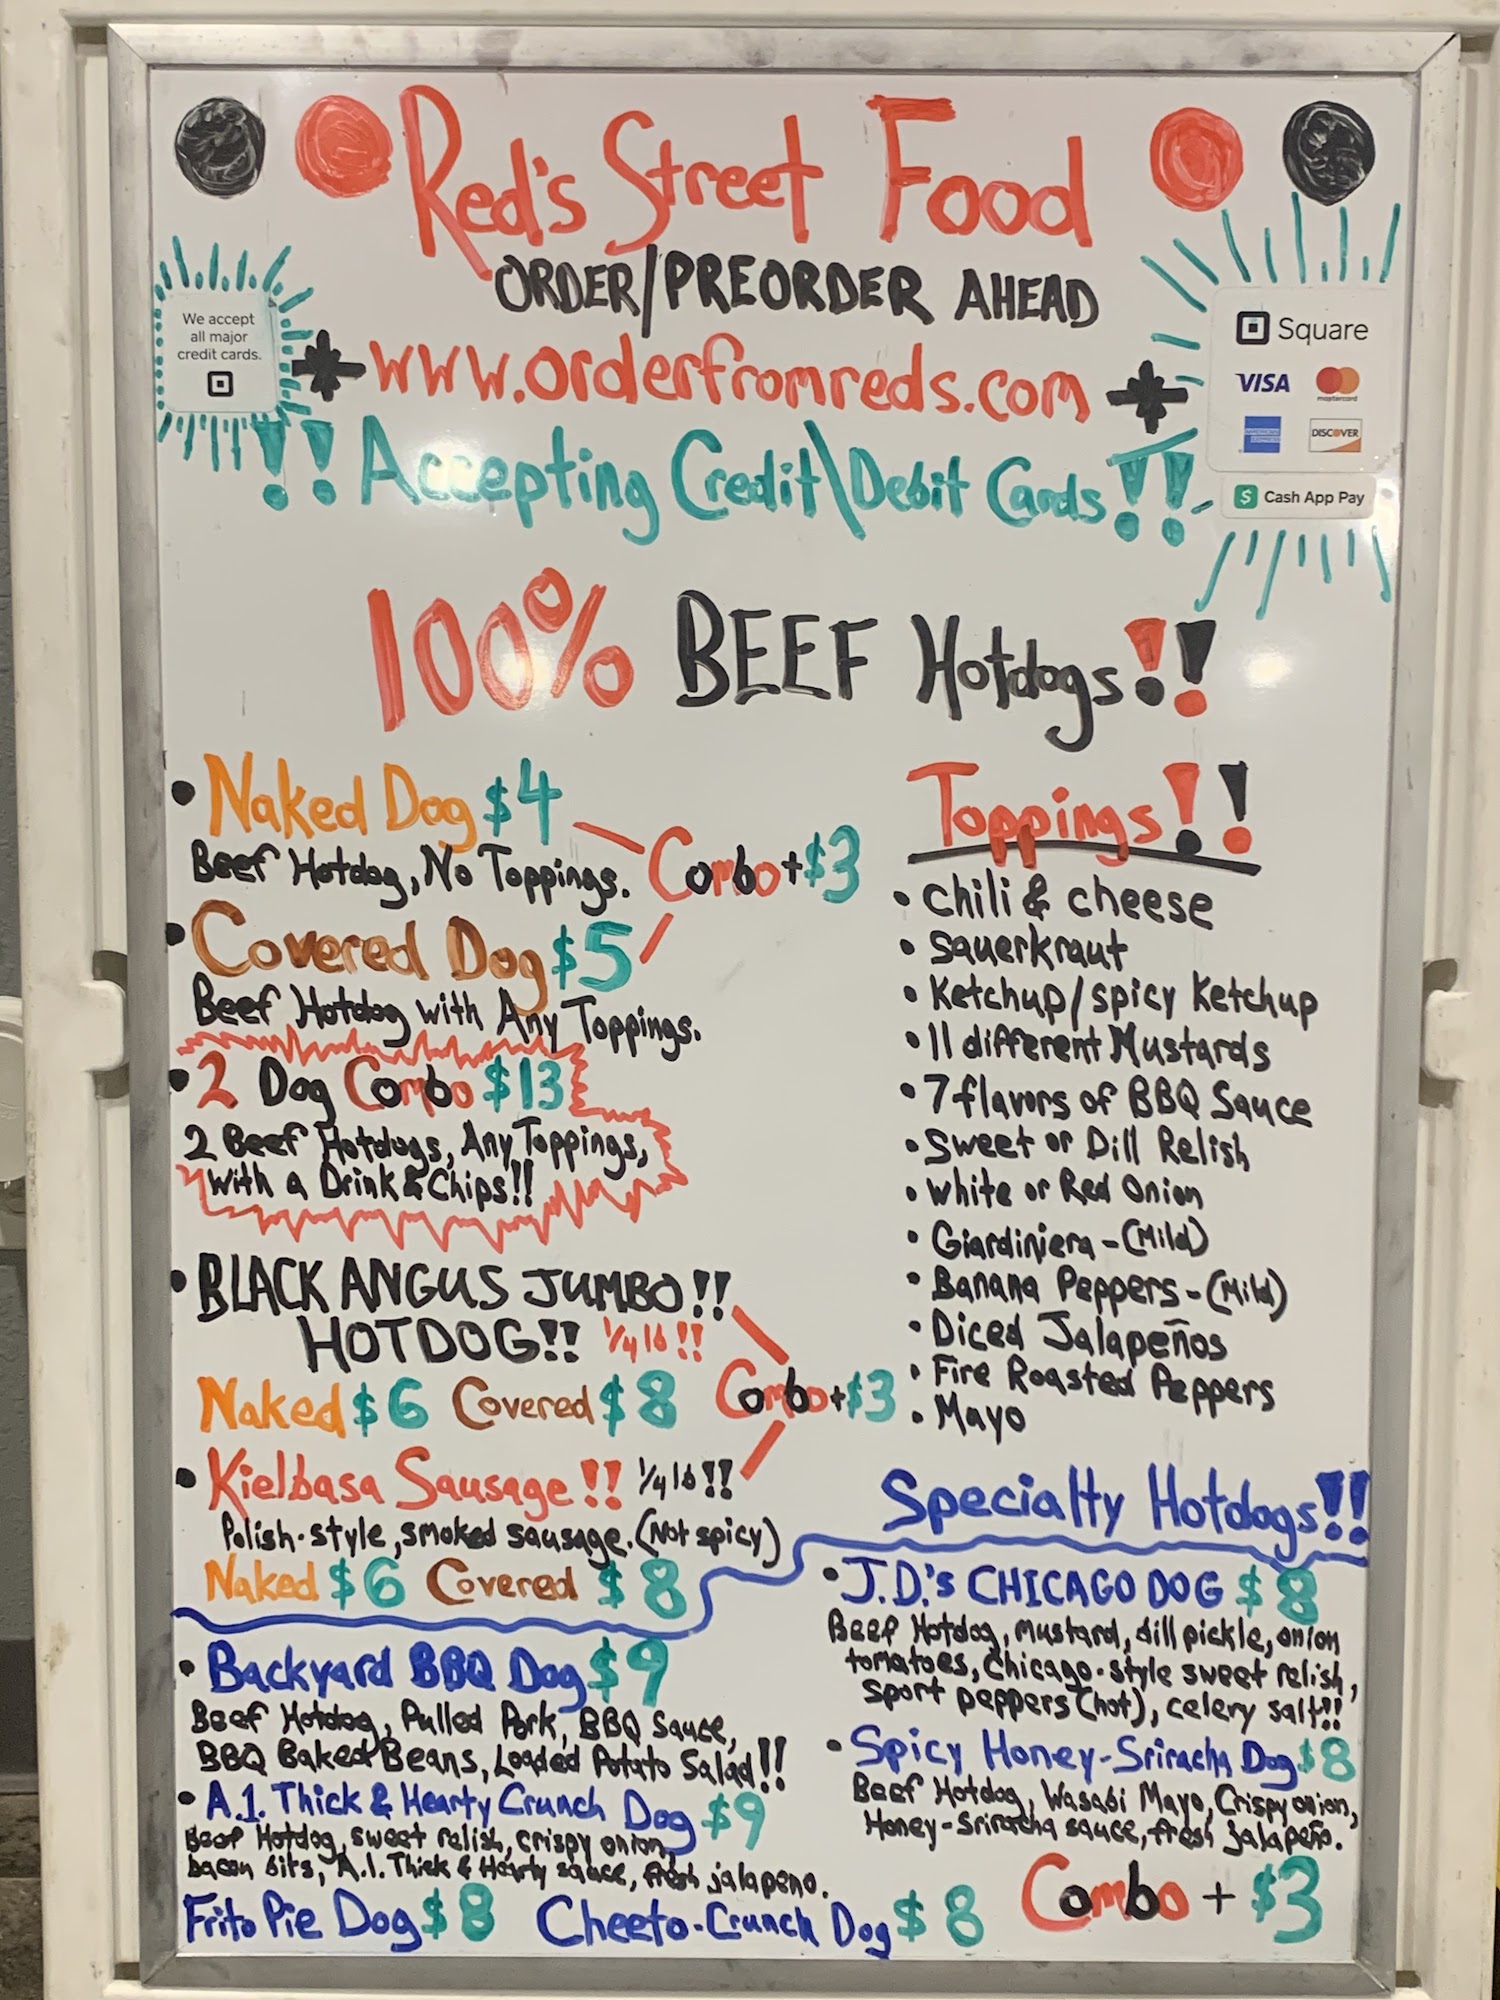 Red's Street Food
ORDER/PREORDER AHEAD
We accept
all major
credit cards.
*www.orderfromreds.com*
Square
VISA
mastercard
AMERICAN EXPRESS
DISCOVER
Cash App Pay
!! Accepting Credit\Debit Cards!!
100% BEEF Hotdogs!!
• Naked Dog $4
Beef Hotdog, No Toppings.
Combo +$3
• Covered Dog $5
Beef Hotdog with Any Toppings.
• 2 Dog Combo $13
2 Beef Hotdogs, Any Toppings,
with a Drink & Chips!!
• BLACK ANGUS JUMBO!!
HOTDOG!! 1/4 lb!!
Naked $6 Covered $8
Combo +$3
• Kielbasa Sausage!! 1/4 lb!!
Polish-style, smoked sausage. (Not spicy)
Naked $6 Covered $8
Toppings!!
• Chili & cheese
• Sauerkraut
• Ketchup/spicy Ketchup
• 11 different Mustards
• 7 flavors of BBQ Sauce
• Sweet or Dill Relish
• White or Red Onion
• Giardiniera - (Mild)
• Banana Peppers - (Mild)
• Diced Jalapeños
• Fire Roasted Peppers
• Mayo
Specialty Hotdogs!!
• J.D.'s CHICAGO DOG $8
Beef Hotdog, mustard, dill pickle, onion
tomatoes, Chicago-style sweet relish,
sport peppers (hot), celery salt!!
• Spicy Honey-Sriracha Dog $8
Beef Hotdog, Wasabi Mayo, Crispy onion,
Honey-Sriracha sauce, fresh jalapeño.
• Backyard BBQ Dog $9
Beef Hotdog, Pulled Pork, BBQ Sauce,
BBQ Baked Beans, Loaded Potato Salad!!
• A.1. Thick & Hearty Crunch Dog $9
Beef Hotdog, sweet relish, crispy onion,
bacon bits, A.1. Thick & Hearty sauce, fresh jalapeno.
Frito Pie Dog $8 Cheeto-Crunch Dog $8
Combo + $3